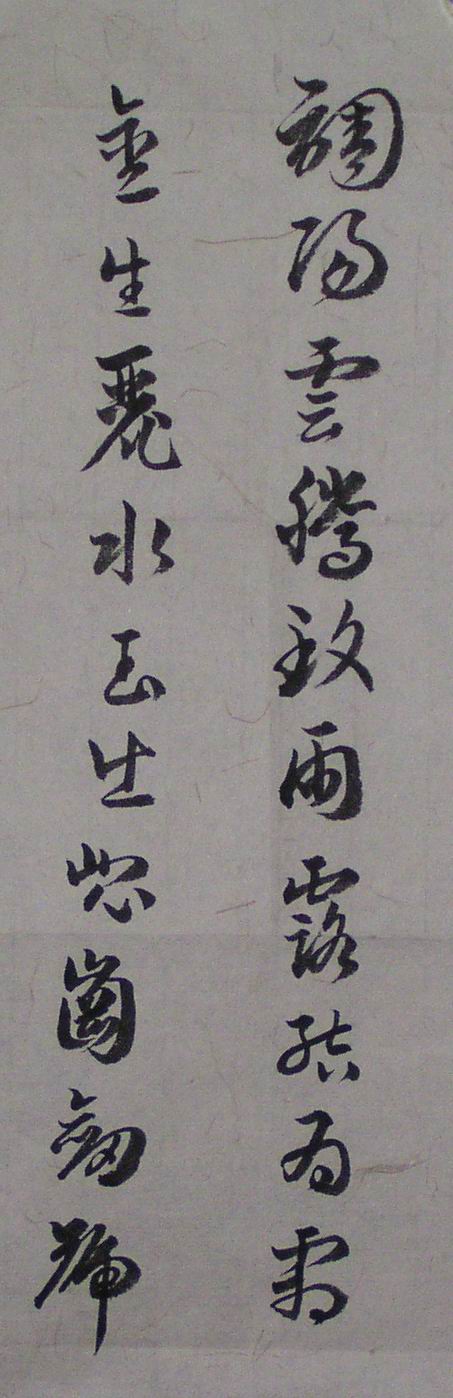 調陽雲騰致雨露結為霜
金生麗水玉出崐崗劍號